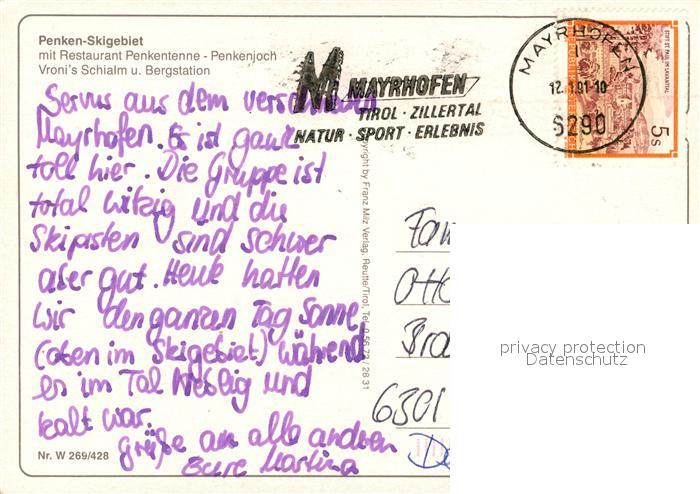 Penken-Skigebiet
mit Restaurant Penkentenne - Penkenjoch
Vroni's Schialm u. Bergstation
Servus aus dem verschneiten
Mayrhofen. Es ist ganz
toll hier. Die Gruppe ist
total witzig und die
Skipisten sind schwer
aber gut. Heute hatten
wir den ganzen Tag Sonne
(oben im Skigebiet) während
es im Tal neblig und
kalt war.
Grüße an alle anderen
Eure Martina
Nr. W 269/428
MAYRHOFEN
TIROL · ZILLERTAL
NATUR · SPORT · ERLEBNIS
MAYRHOFEN
12.1.91-10
6290
STIFT ST. PAUL IM LAVANTTAL
REPUBLIK
5 S
Copyright by Franz Milz Verlag, Reutte/Tirol, Tel. 0 56 72 / 28 31
Fam
Otto
6301
privacy protection
Datenschutz